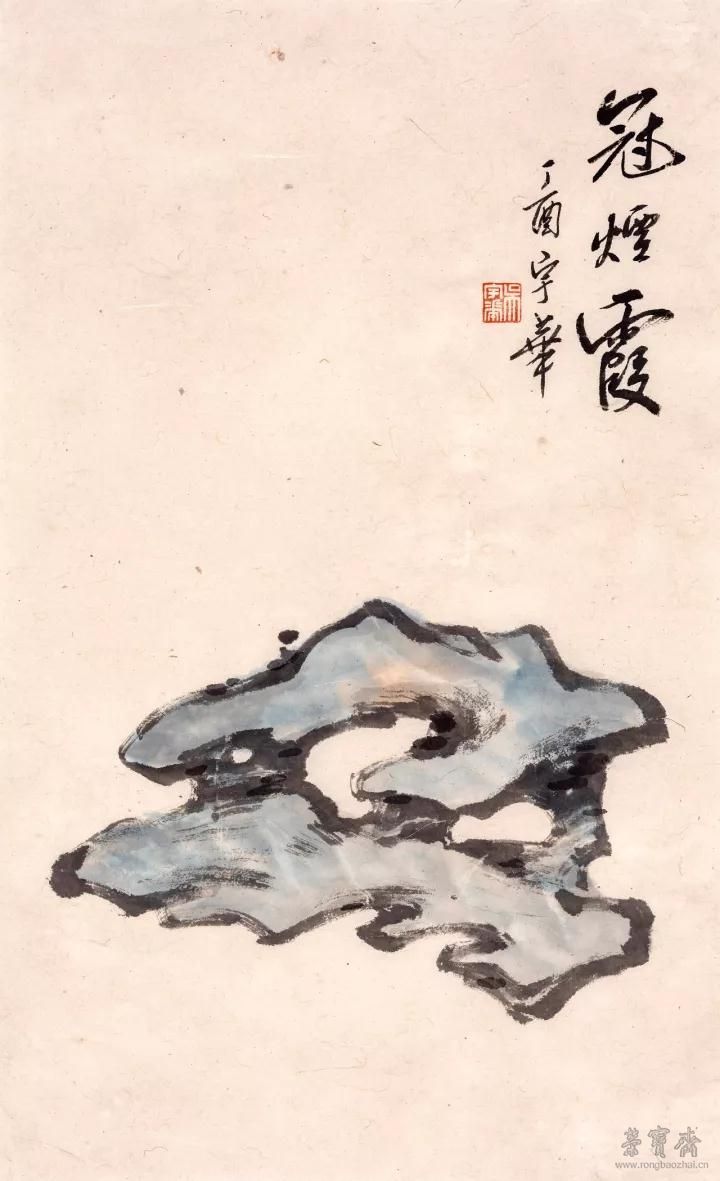 冠煙霞
丁酉宇華
榮寶齋
www.rongbaozhai.cn